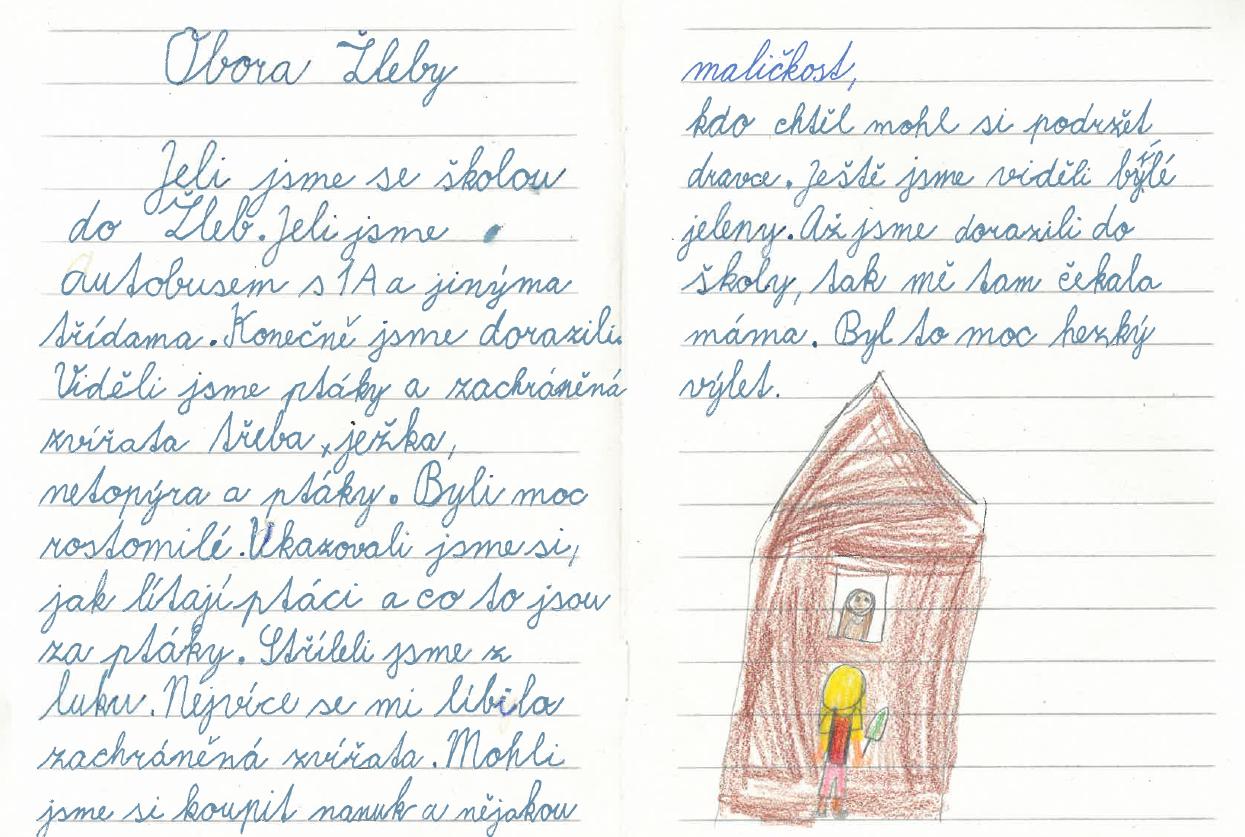 Obora Žleby
Jeli jsme se školou
do Žleb. Jeli jsme
autobusem s 1A a jinýma
třídama. Konečně jsme dorazili.
Viděli jsme ptáky a zachráněná
zvířata třeba, ježka,
netopýra a ptáky. Byli moc
rostomilé. Ukazovali jsme si,
jak lítají ptáci a co to jsou
za ptáky. Stříleli jsme z
luku. Nejvíce se mi líbila
zachráněná zvířata. Mohli
jsme si koupit nanuk a nějakou
maličkost,
kdo chtěl mohl si podržet
dravce. Ještě jsme viděli bílé
jeleny. Až jsme dorazili do
školy, tak mě tam čekala
máma. Byl to moc hezký
výlet.